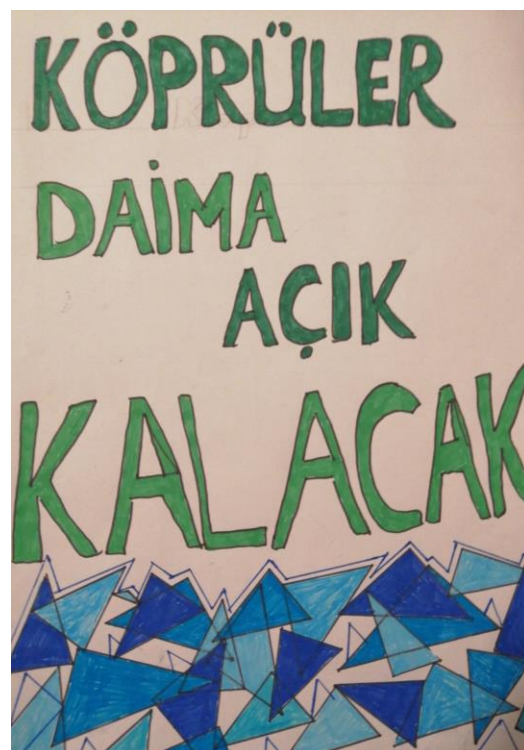 KÖPRÜLER
DAİMA
AÇIK
KALACAK